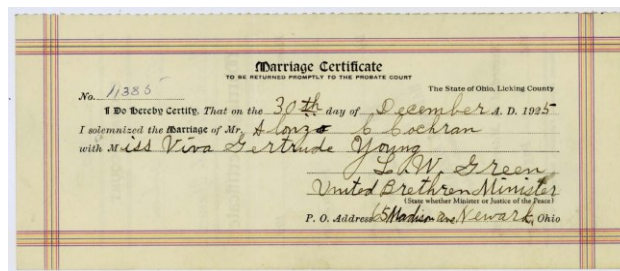 Marriage Certificate
TO BE RETURNED PROMPTLY TO THE PROBATE COURT
The State of Ohio, Licking County
No. 11385
I Do Hereby Certify, That on the 30th day of December A. D. 1925
I solemnized the Marriage of Mr. Alonzo C Cochran
with Miss Viva Gertrude Young
L. W. Green
United Brethren Minister
(State whether Minister or Justice of the Peace)
P. O. Address 65 Madison ave. Newark, Ohio